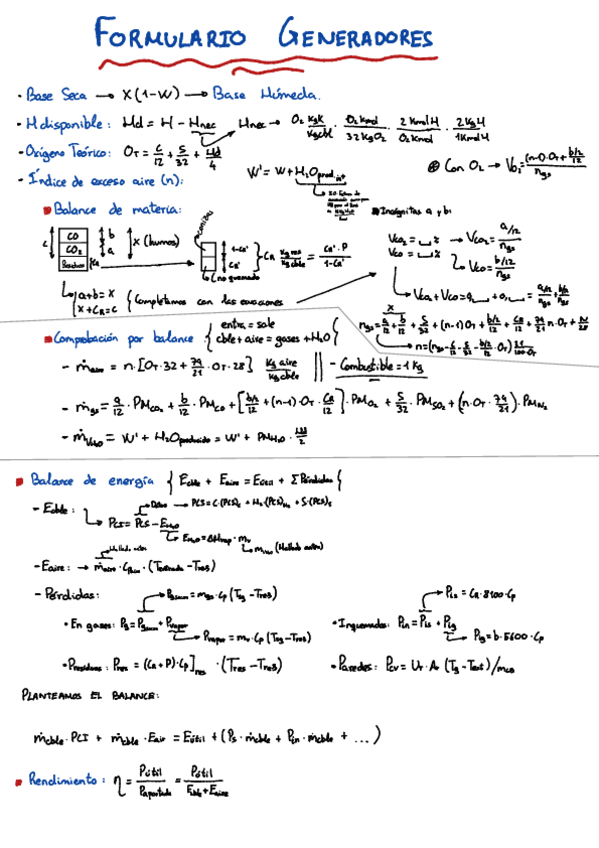 FORMULARIO GENERADORES
· Base Seca → X(1-W) → Base Húmeda.
· H disponible: Hd = H - Hnec → Hnec → O₂ kgk/kgcble · O₂Kmol/32KgO₂ · 2KmolH/O₂Kmol · 2KgH/1KmolH
· Oxígeno Teórico: OT = C/12 + S/32 + Hd/4
W' = W + H₂Oprod.
⊛ Con O₂ → VO₂ = ((n-1)·OT + b/2/12)/ngs
· Índice de exceso aire (n):
■ Balance de materia:
■ Incógnitas a y b:
c CO CO₂ Residuos b a CR X (humos)
cenizas 1-CR' CR' C no quemado
CR kg res/kg cble = CR'·P/1-CR'
VCO₂ = % → VCO₂ = a/12/ngs
VCO = % → VCO = b/12/ngs
VCO₂ + VCO = 0,_ + 0,_ = a/12/ngs + b/12/ngs
a+b = X
X + CR = C
{Completamos con las ecuaciones
ngs = a/12 + b/12 + S/32 + (n-1)·OT + b/2/12 + CR/12 + 79/21·n·OT + N/28
n = (ngs - a/12 - S/32 - b/2/12 · OT) 21/100·OT
■ Comprobación por balance { entra = sale
cble + aire = gases + H₂O {
- ṁaire = n·[OT·32 + 79/21·OT·28] Kg aire/kg cble || - Combustible = 1 Kg
- ṁgs = a/12·PMCO₂ + b/12·PMCO + [b/2/12 + (n-1)·OT · CR/12]·PMO₂ + S/32·PMSO₂ + (n·OT·79/21)·PMN₂
- ṁVH₂O = W' + H₂Oproducido = W' + PMH₂O · Hd/2
■ Balance de energía { Ecble + Eaire = Eútil + Σ Pérdidas {
- Ecble:
Dato → PCS = C·(PCS)c + H₂·(PCS)H₂ + S·(PCS)s
PCI = PCS - EH₂O
EH₂O = ΔHvap · mv
mH₂O (Hallado antes)
Hallado antes
- Eaire: → ṁaire · Cpaire · (Tentrada - Tref)
- Pérdidas:
Pgseco = mgs·Cp (Tsg - Tref)
PIs = CR·8100·Cp
· En gases: Pg = Pgseco + Pvapor
Pvapor = mv·Cp (Tsg - Tref)
· Inquemados: PIn = PIs + PIg
PIg = b·5600·Cp
· Presiduos: Pres = (CR + P)·Cp]res · (Tres - Tref)
· Paredes: PCV = UT·A·(Tg - Text)/mcb
PLANTEAMOS EL BALANCE:
ṁcble·PCI + ṁcble·Eair = Eútil + (Ps·ṁcble + Pin·ṁcble + ...)
■ Rendimiento: η = Pútil/Paportada = Pútil/Ecble + Eaire